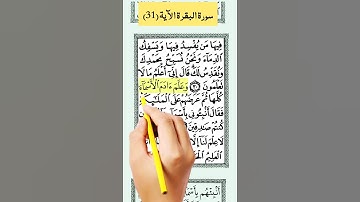 سورة البقرة الآية (31)
فِيهَا مَن يُفْسِدُ فِيهَا وَيَسْفِكُ
الدِّمَاءَ وَنَحْنُ نُسَبِّحُ بِحَمْدِكَ
وَنُقَدِّسُ لَكَ قَالَ إِنِّي أَعْلَمُ مَا لَا
تَعْلَمُونَ ٣٠ وَعَلَّمَ ءَادَمَ الْأَسْمَاءَ
كُلَّهَا ثُمَّ عَرَضَهُمْ عَلَى الْمَلَٰئِكَةِ
فَقَالَ أَنبِئُونِي بِأَسْمَاءِ
كُنتُمْ صَٰدِقِينَ
لَا عِلْمَ لَنَا إِلَّا
الْعَلِيمُ
أَنبِئْهُم بِأَسْمَا